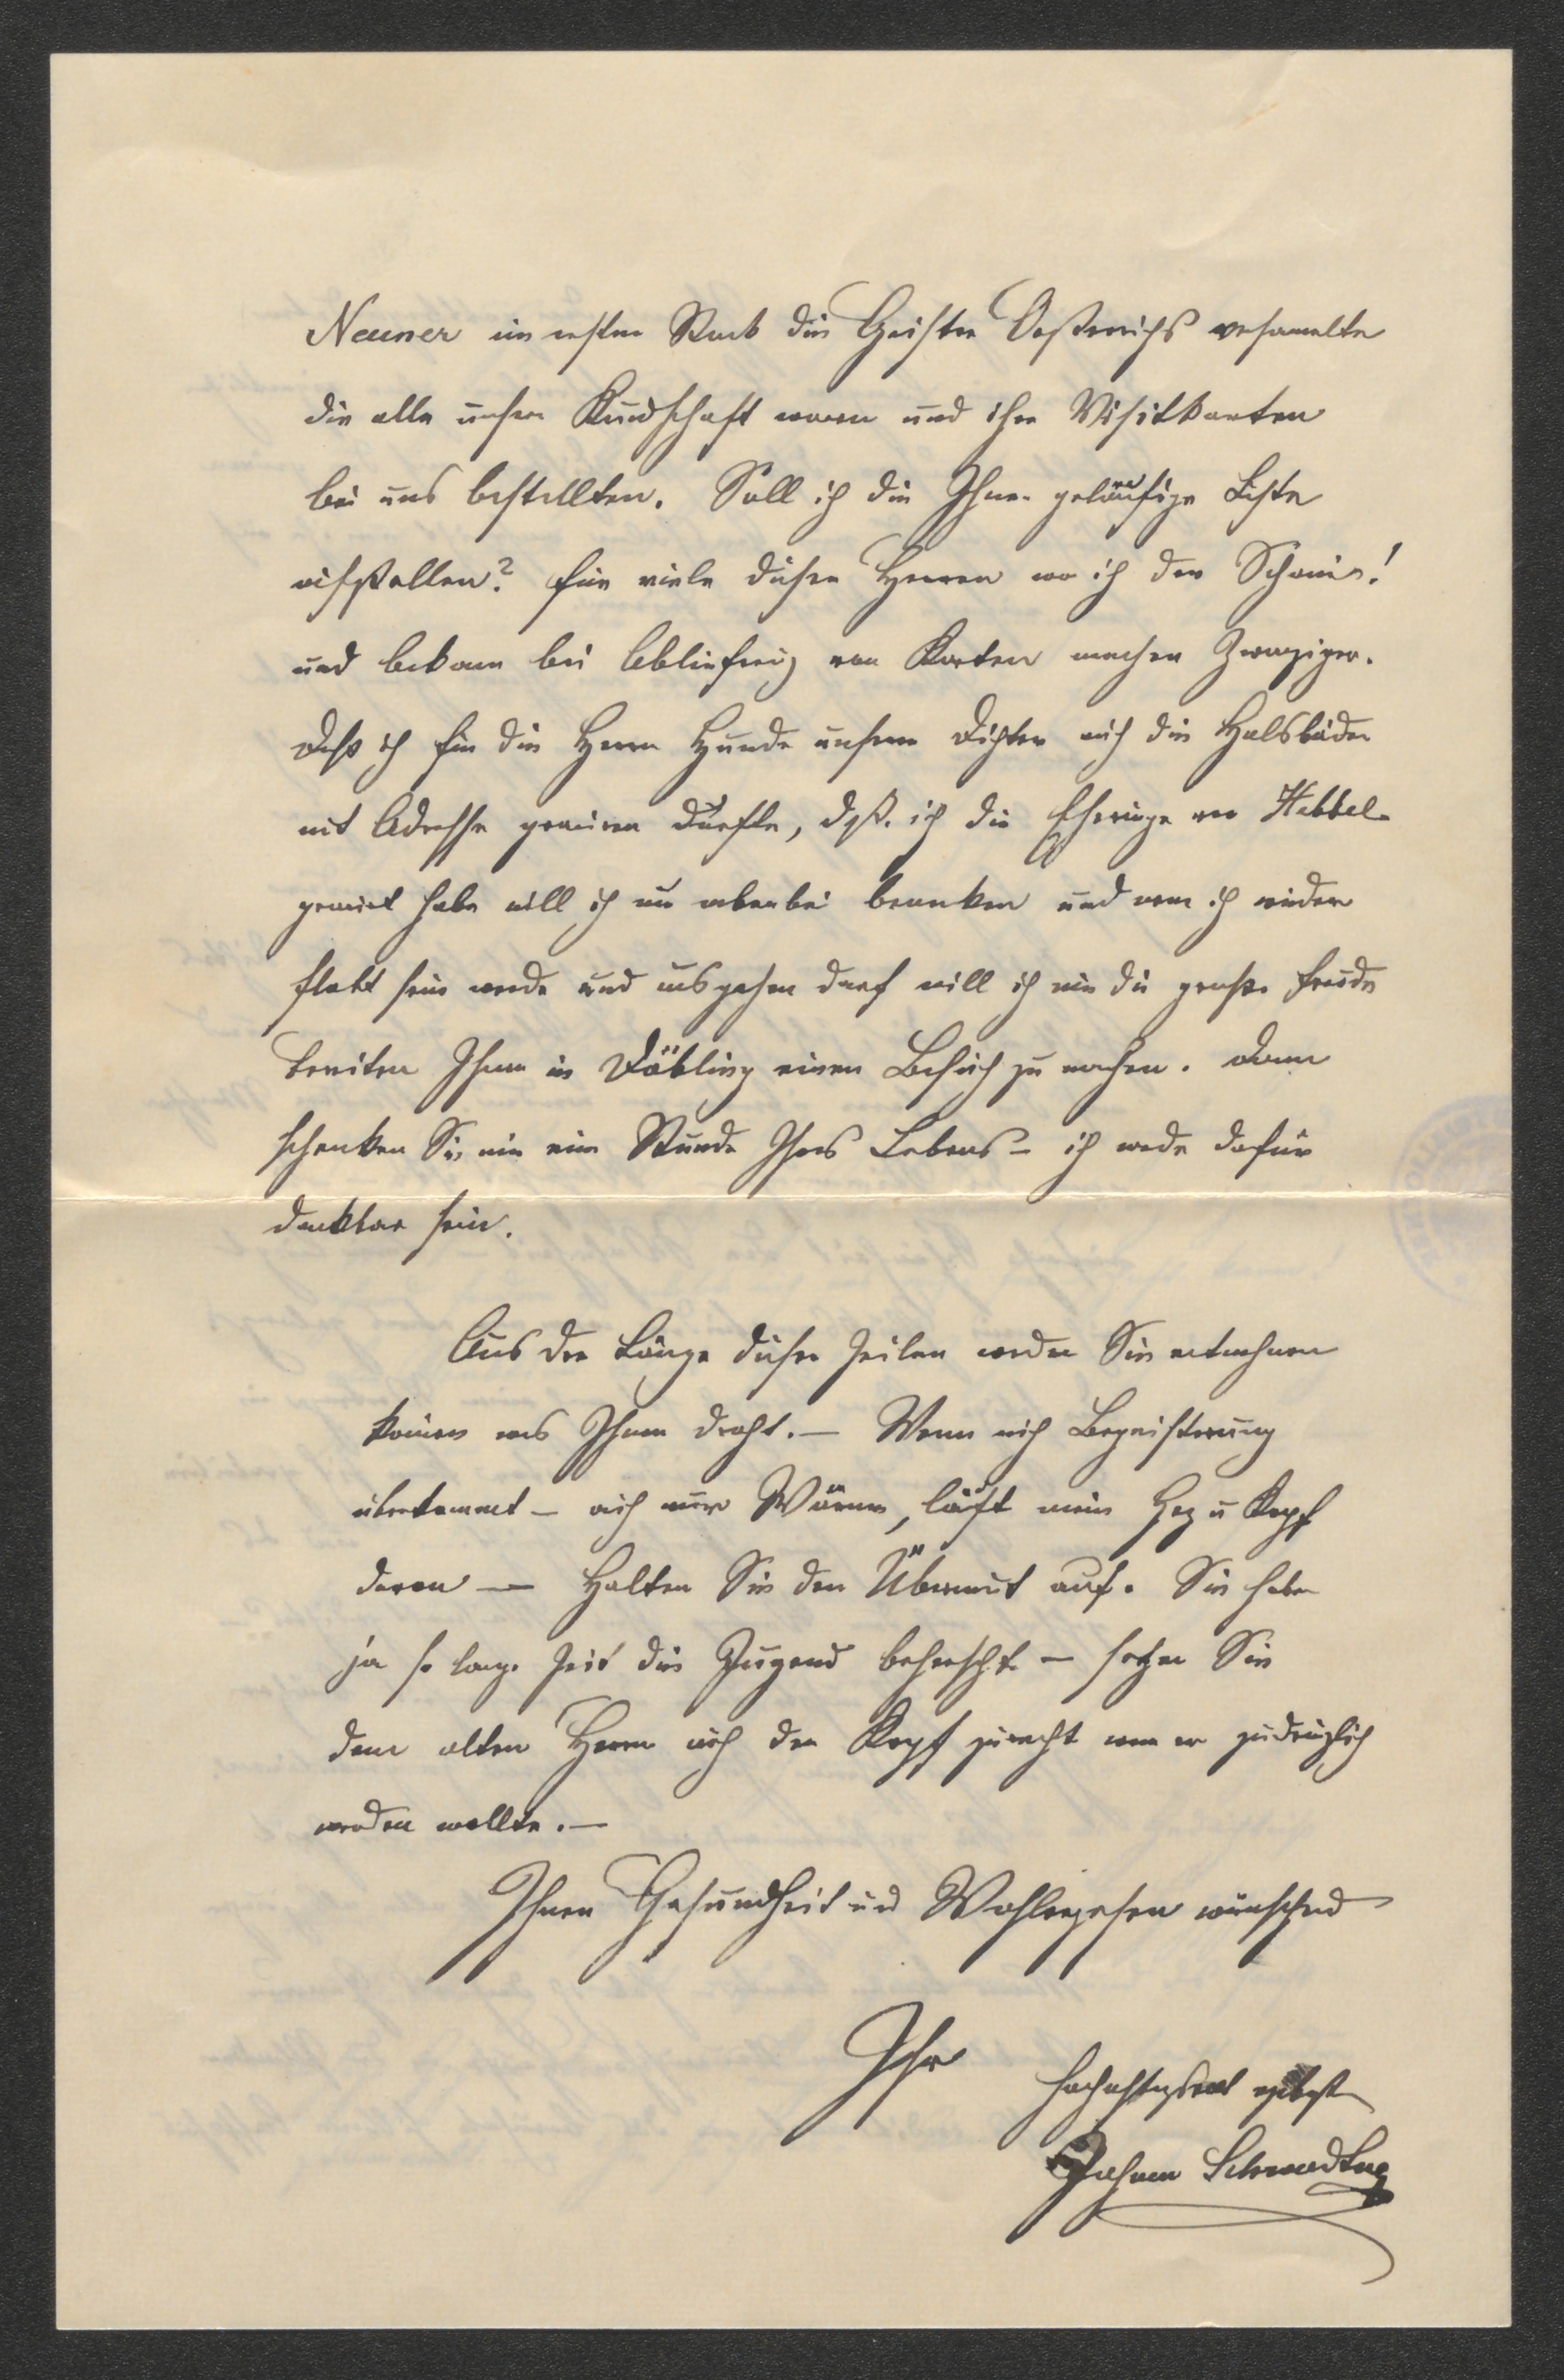 Neuner im ersten Stock die Geister Oesterreichs versamelte
die alle unsere Kundschaft waren und ihre Visitkarten
bei uns bestellten. Soll ich die Ihnen geläufige Liste
aufstellen? Für viele dieser Herren war ich der
und bekam bei Ablieferung von Karten manchen Zwanziger.
Daß ich für die Herrn Hunde unserer Dichter auch die Halsbänder
mit Adresse graviren durfte, daß ich die Eheringe von Hebbel
gravirt habe will ich nur nebenbei bemerken und wenn ich wieder
flott sein werde und ausgehen darf will ich mir die große Freude
bereiten Ihnen in Döbling einen Besuch zu machen. Dann
schenken Sie mir eine Stunde Ihres Lebens – ich werde dafür
dankbar sein.
Aus der Länge dieser Zeilen werden Sie entnehmen
können was Ihnen droht. – Wenn mich Begeisterung
überkommt – auch nur Wärme, läuft mein Herz u Kopf
davon – Halten Sie den Übermut auf. Sie haben
ja so lange Zeit die Jugend beherrscht – setzen Sie
dem alten Herrn auch den Kopf zurecht wenn er zudringlich
werden wollte. –
Ihnen Gesundheit und Wohlergehen wünschend
Ihr hochachtungsvoll ergebenst
Johann Schwerdtner